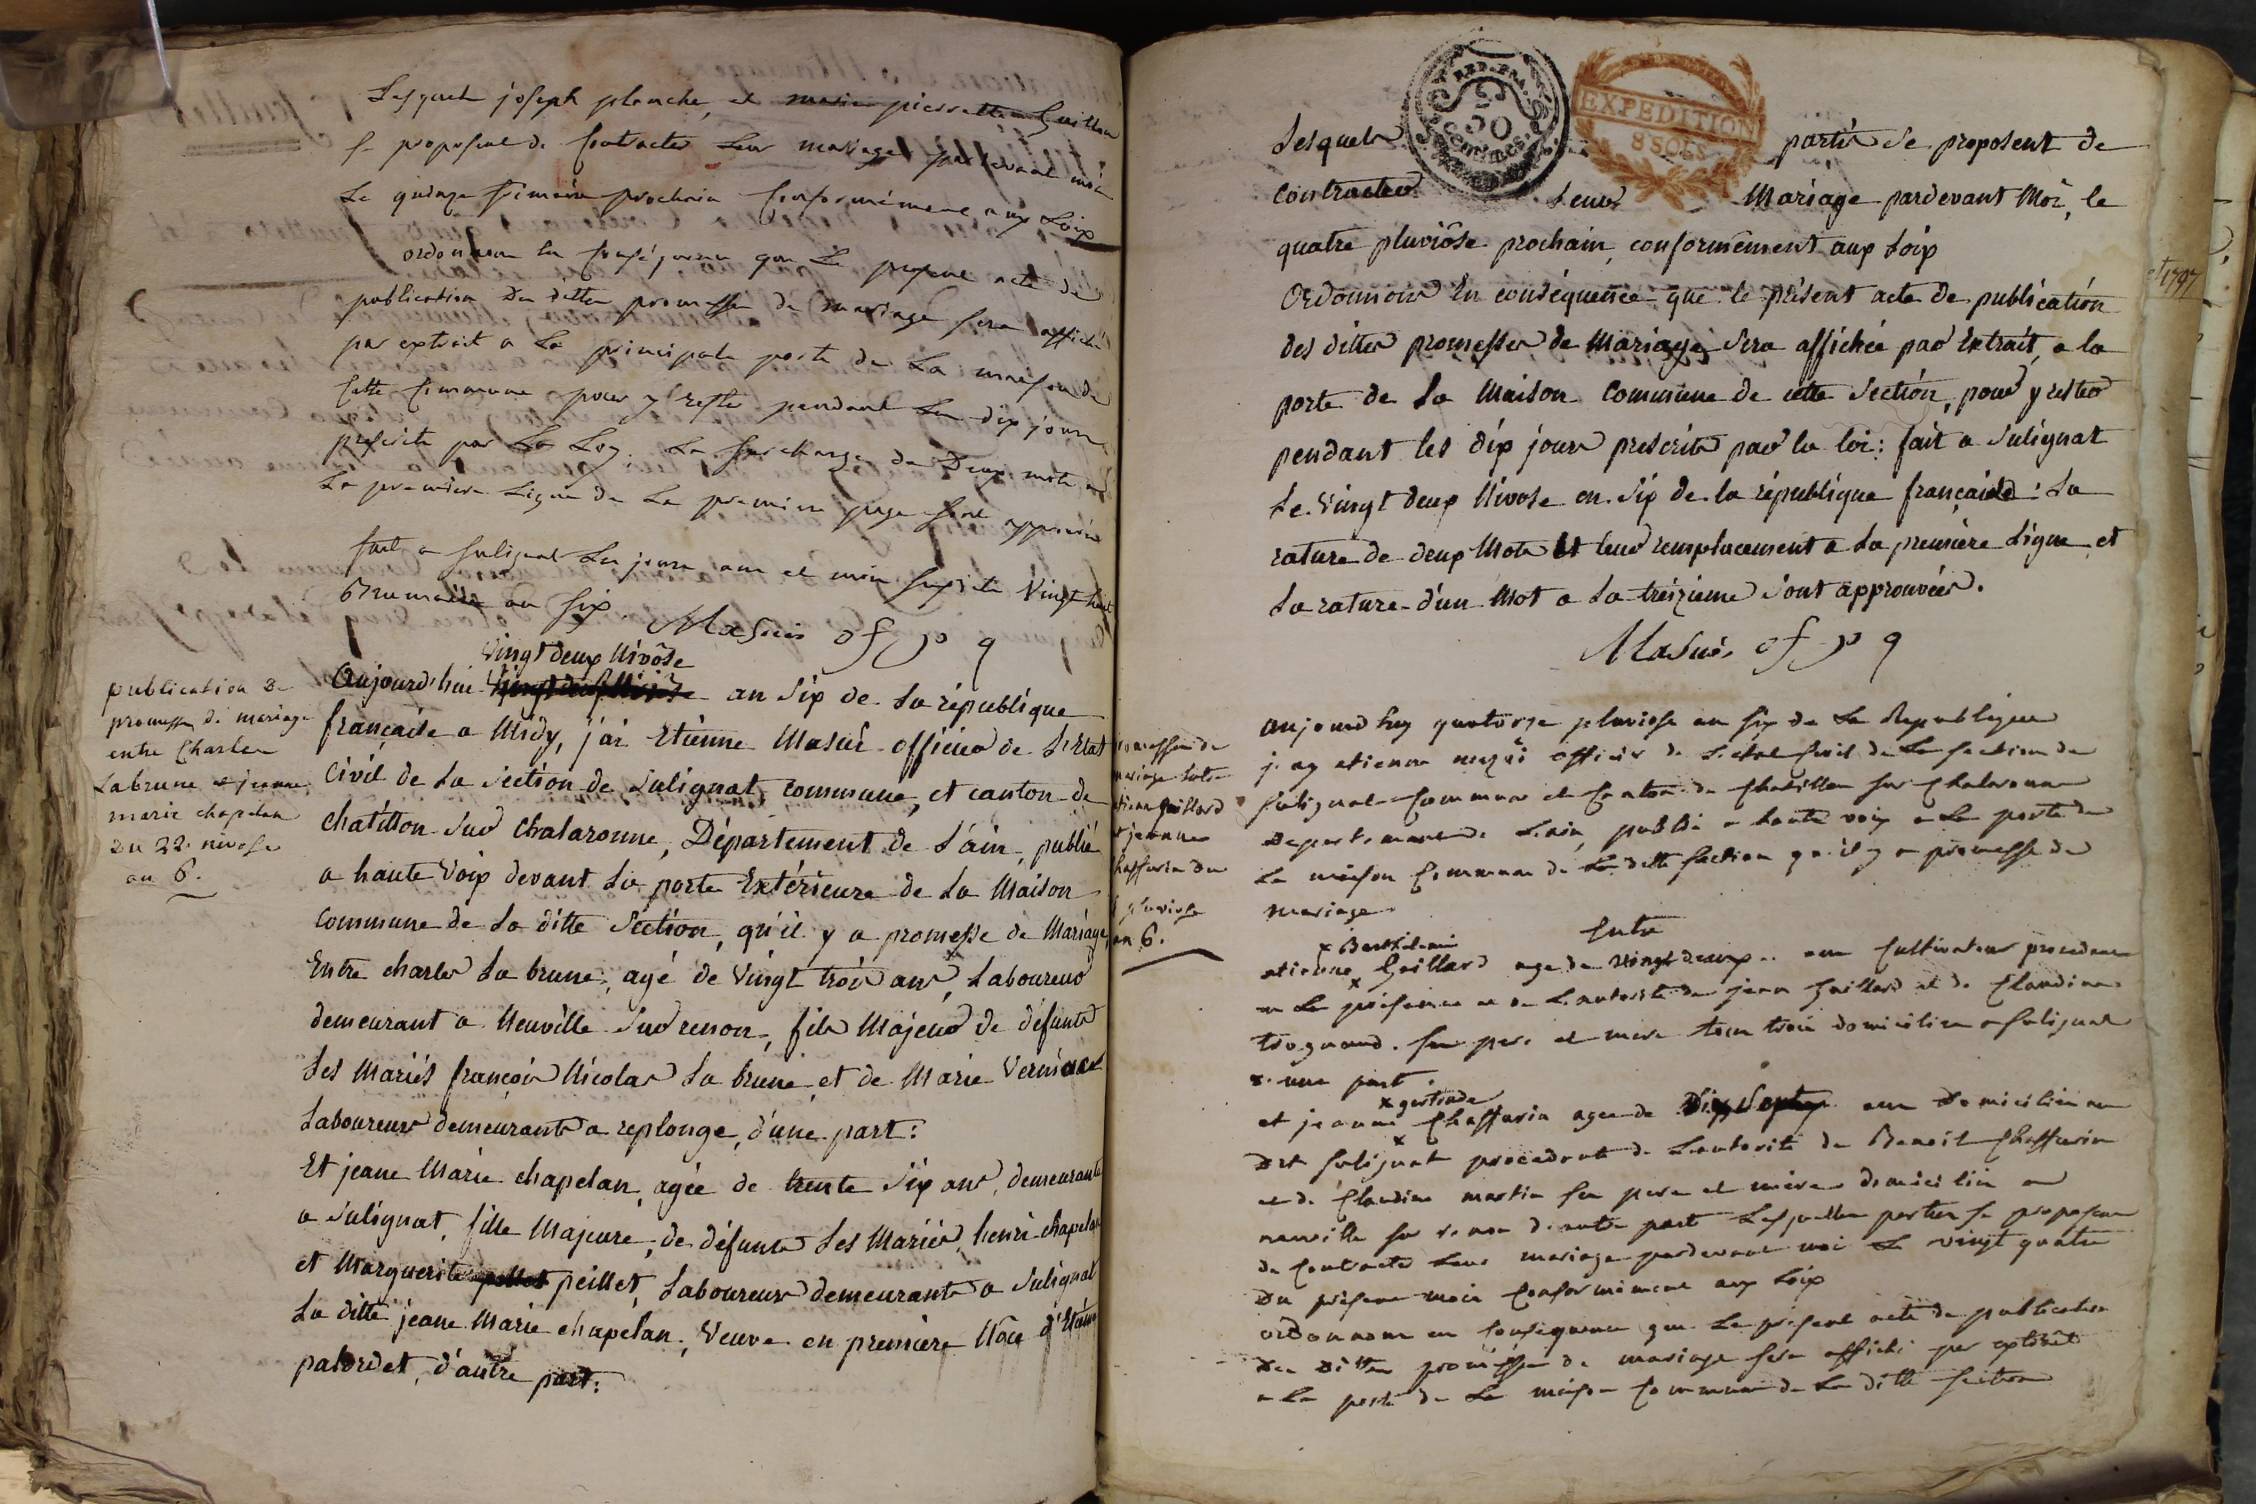 Lesquels joseph planche, et marie pierrette Guillon
se proposent de Contracter Leur mariage pardevant moi
Le quinze frimaire prochain Conformément aux Loix
ordonnons en Conséquence que Le présent acte de
publication des dittes promesses de mariage sera affiché
par extrait a La principale porte de La maison de
Cette Commune pour y rester pendant Les dix jours
prescrits par La Loy. La surcharge de Deux mots a
La première Ligne de La première page sont approuvés
fait a sulignat Les jours an et mois susdits Vingt huit
Brumaire an six. Masuir of p q
vingt deux Nivôse
publication de
promesse de mariage
entre Charles
Labrune et jeanne
marie chapelan
du 22 nivose
an 6.
Aujourd'hui an Six de la république
française a Midy, j'ai Etienne Masuir officier de L'Etat
Civil de La Section de Sulignat, commune, et canton de
chatillon Sur Chalaronne, Département de L'ain, publié
a haute Voix devant La porte Extérieure de La Maison
Commune de La ditte Section, qu'il y a promesse de Mariage,
Entre charles La brune, agé de Vingt trois ans, Laboureur
demeurant a Neuville Sur renon, fils Majeur de défunts
Les Mariés françois Nicolas La brune et de Marie
Laboureurs demeurants a replonge, d'une part:
Et jeane Marie chapelan, agée de trente Six ans, demeurante
a Sulignat, fille Majeure, de défunts Les Mariés, henri chapelan
et Marguerite peillet, Laboureurs demeurants a Sulignat
La ditte jeane Marie chapelan, Veuve en première Nôce d'Etienne
palordet, d'autre part:
REP. FRA.
50
CENTIMES
EXPEDITION
8 SOLS
Lesquels parties Se proposent de
contracter Leur Mariage pardevant Moi, le
quatre pluviôse prochain, conformément aux Loix
Ordonnons En conséquence que le présent acte de publication
des dittes promesses de Mariage Sera affichée par Extrait, a la
porte de La Maison Commune de cette Section, pour y rester
pendant les dix jours prescrits par la loi: fait a Sulignat
Le Vingt deux Nivose an Six de la république française: La
rature de deux Mots Et leur remplacement a La première Ligne et
La rature d'un Mot a La treizieme Sont approuvées.
Masuir of p q
1797
promesse de
mariage entre
etienne Gaillard
et jeanne
chaffurin du
pluviose
an 6.
aujourdhuy quatorze pluviose an six de La Republique
j'ay etienne officier de L'etat Civil de La section de
sulignat Commune et Canton de Chatillon sur Chalaronne
Departement de L'ain, publié a haute voix a La porte de
La maison Commune de La ditte section qu'il y a promesse de
mariage
Entre
x Barthelemi
etienne x Gaillard age de vingt deux ans Cultivateur procedant
en La présence et de L'autorité de jean Gaillard et de Claudine
troquand. ses pere et mere tous trois domiciliés a sulignat
d'une part.
x gertrude
et jeanne x Chaffurin agee de Dix Sept ans Domiciliée au
Dit sulignat procedante de L'autorité de Benoit Chaffurin
et de Claudine martin ses pere et mere domiciliés au
neuville sur renon d'autre part Lesquelles parties se proposent
de Contracter Leur mariage pardevant moi Le vingt quatre
Du présent mois Conformément aux Loix
ordonnons en Consequence que Le présent acte de publication
Des Dittes promesses de mariage sera affiché par extrait
a La porte de La maison Commune de La ditte section